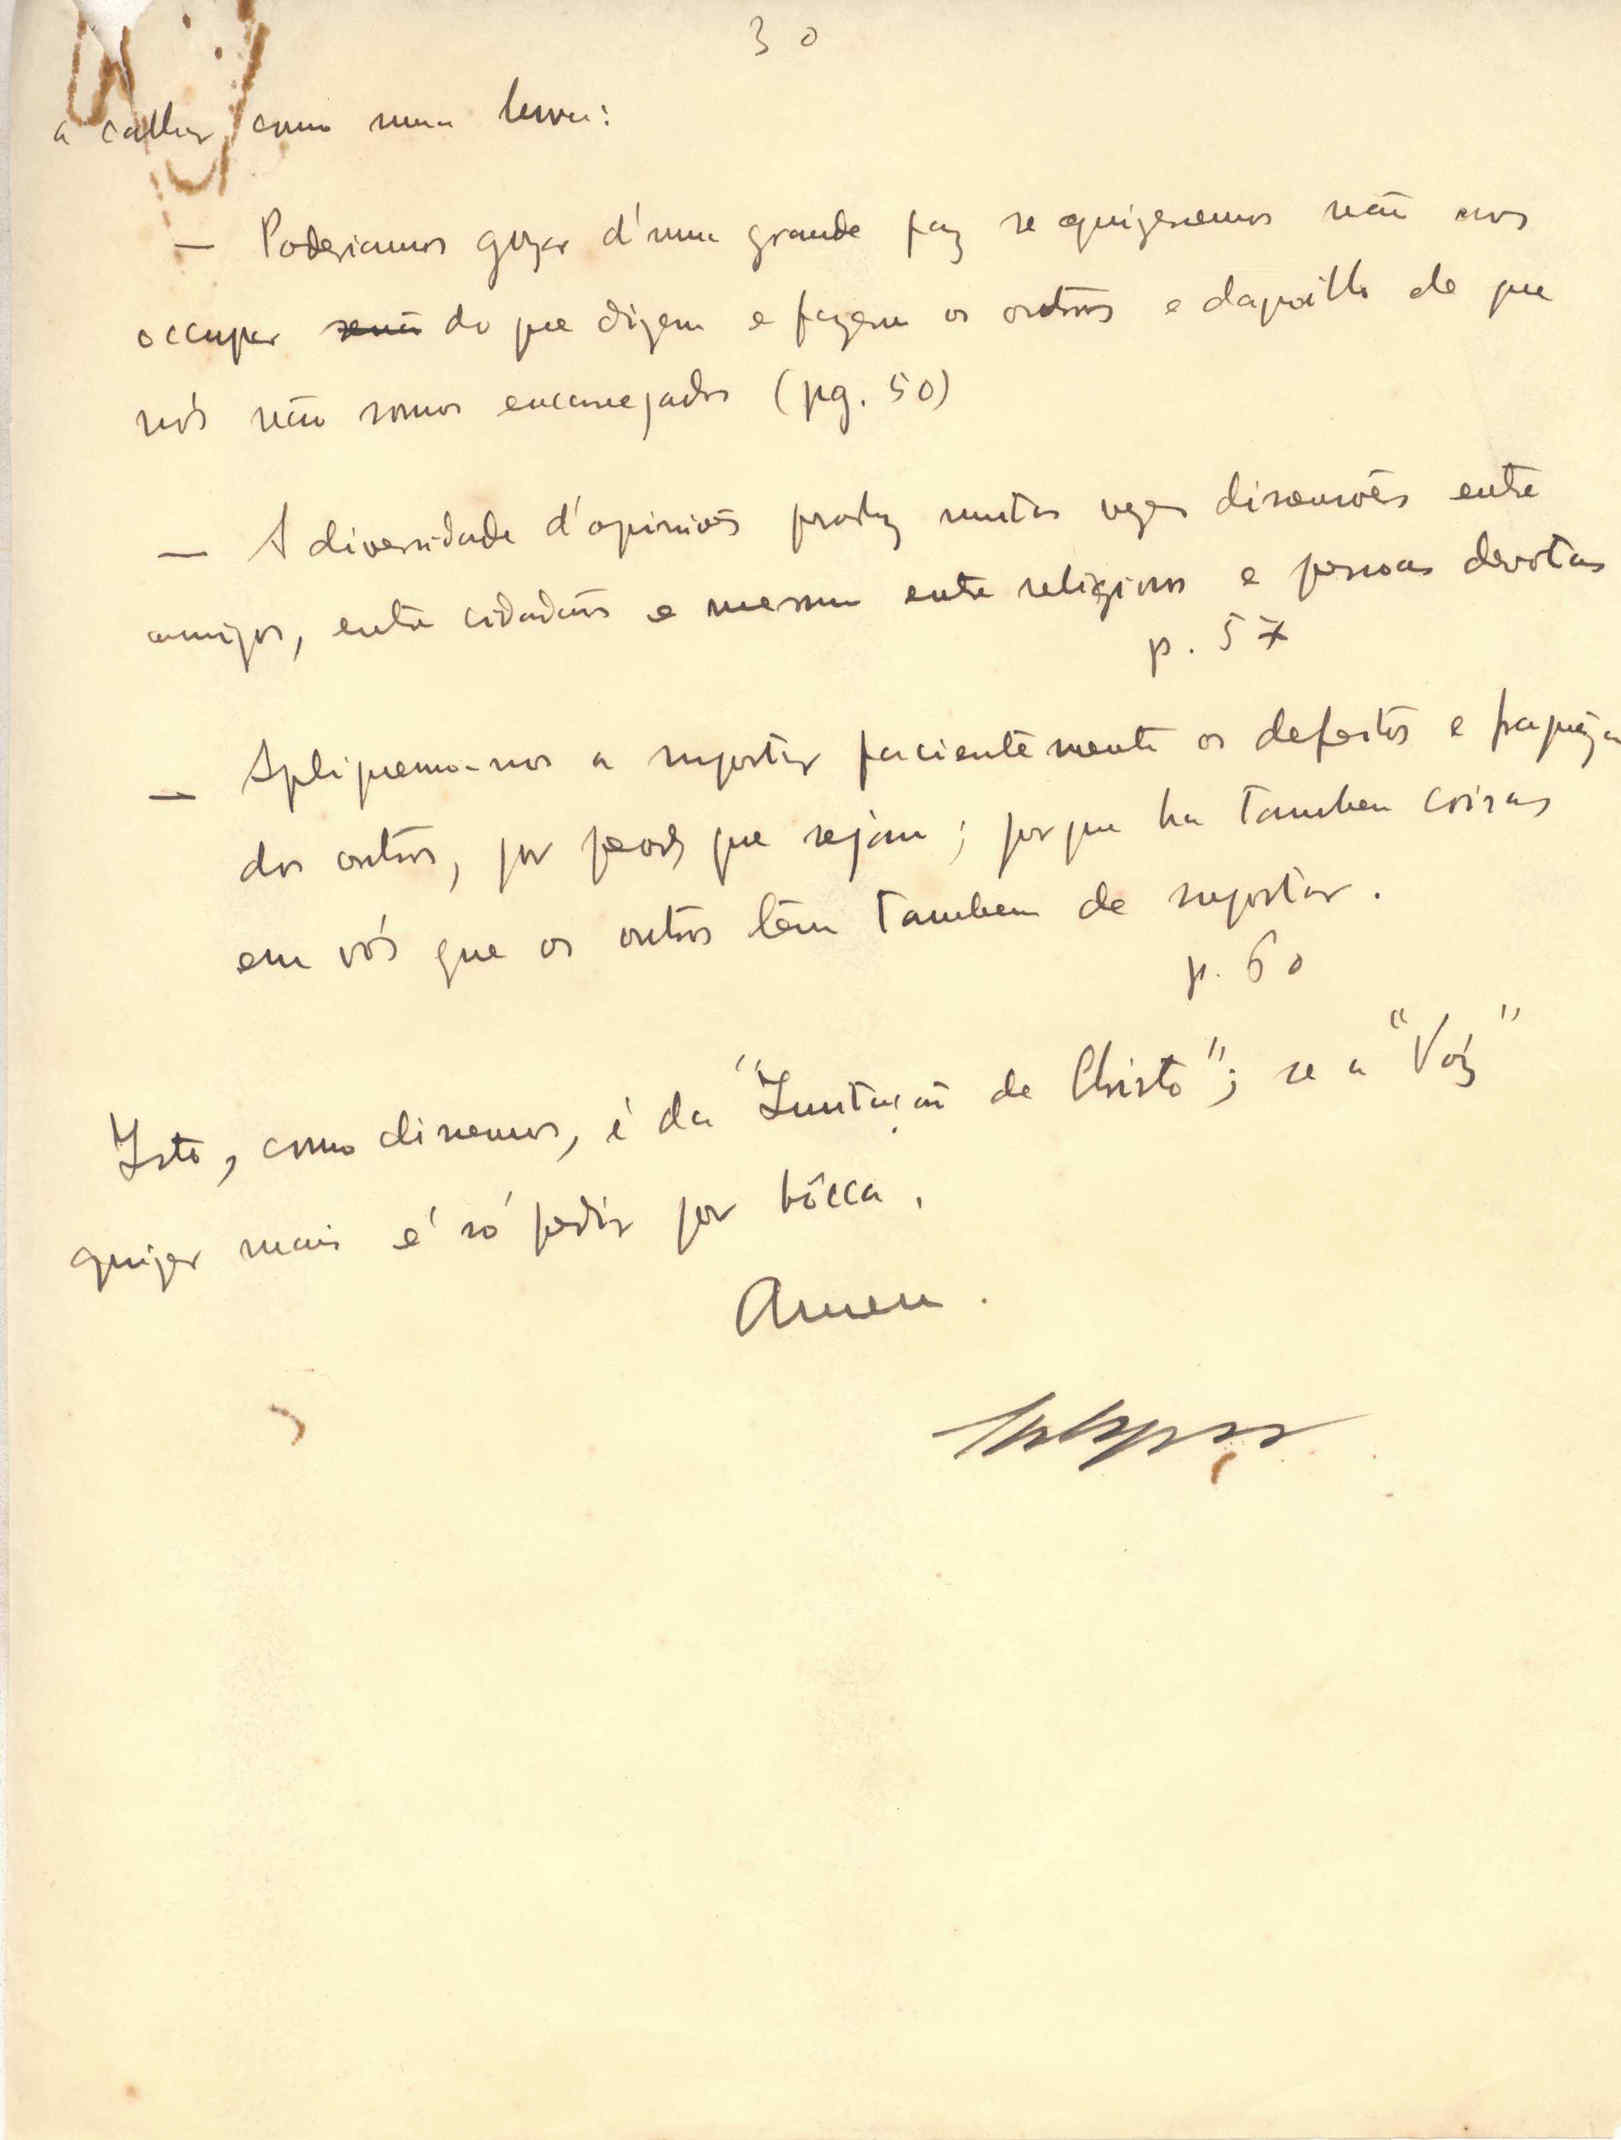 30
a calhar como numa luva:
— Poderiamos gozar d'uma grande paz se quizessemos não nos
occupar senão do que dizem e fazem os outros e daquillo de que
nós não somos encarregados (pg. 50)
— A diversidade d'opiniões produz muitas vezes dissensões entre
amigos, entre cidadãos e mesmo entre religiosos e pessoas devotas
p. 57
— Apliquemo-nos a suportar pacientemente os defeitos e fraquezas
dos outros, por peores que sejam; porque ha tambem coisas
em vós que os outros têm tambem de suportar.
p. 60
Isto, como dissemos, é da "Imitação de Christo"; se a "Voz"
quizer mais é só pedir por bôcca.
Amen.